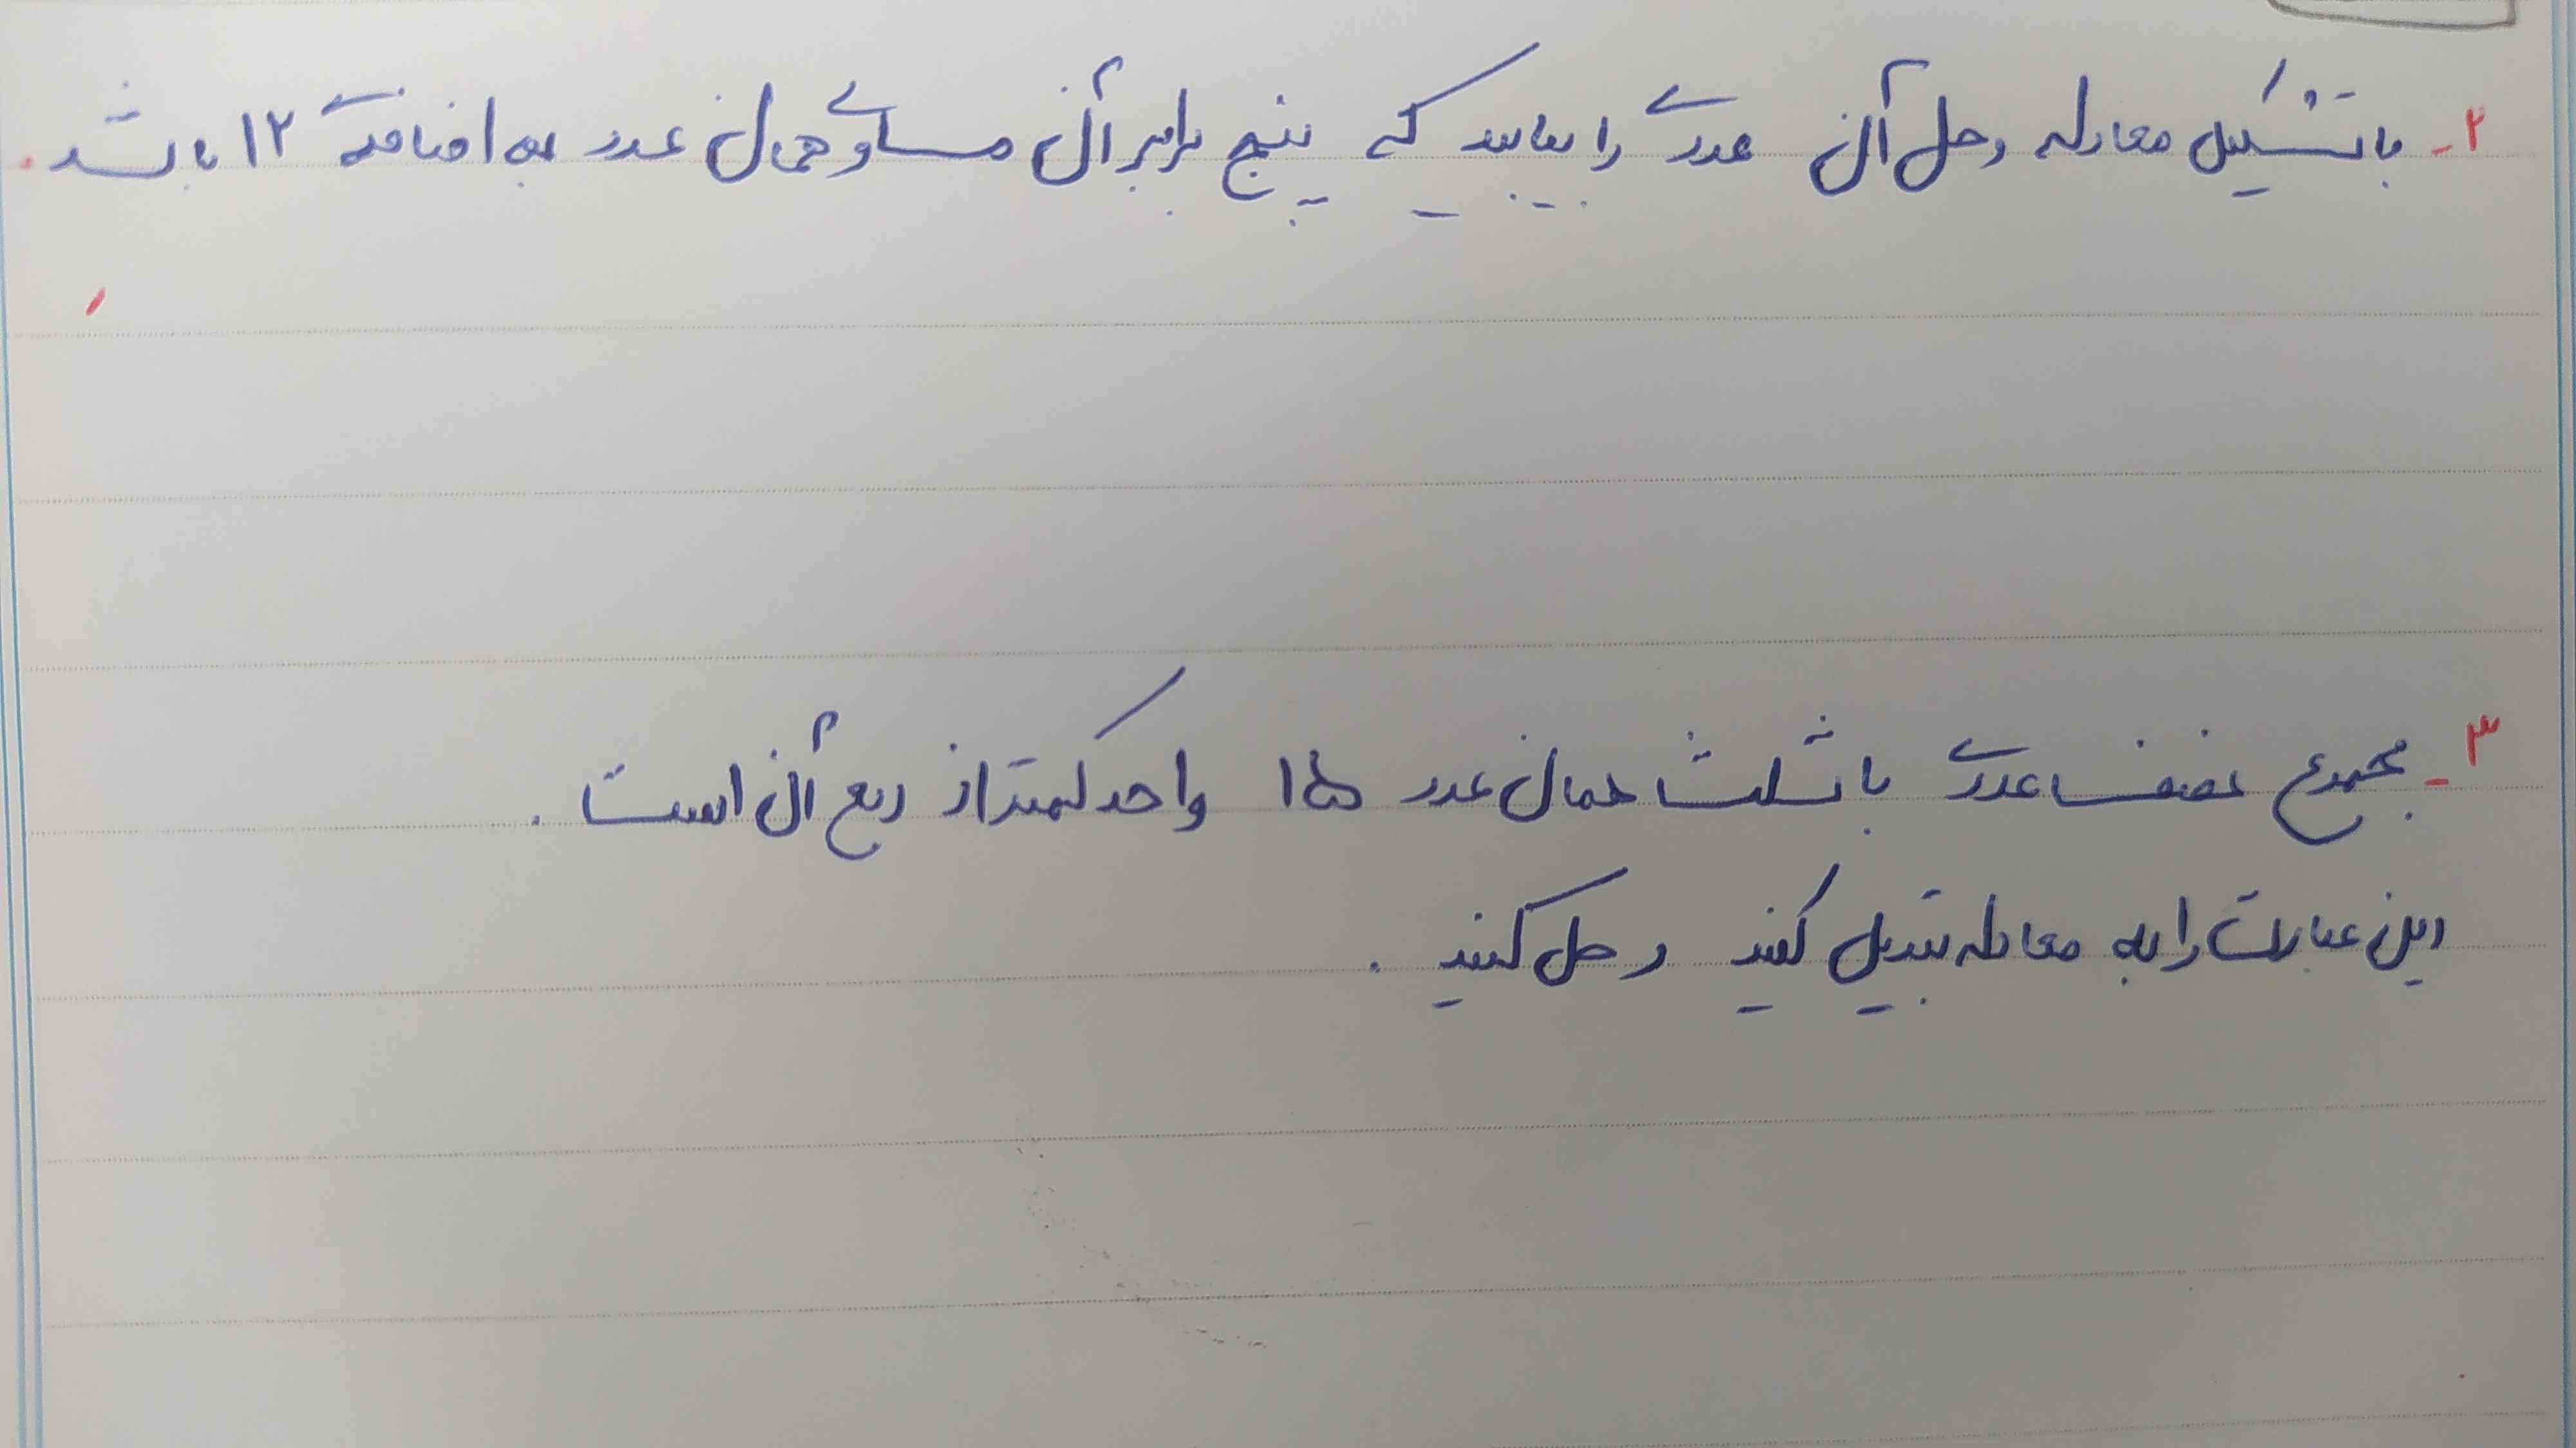 ۲- با تشکیل معادله و حل آن عددی را بیابید که پنج برابر آن مساوی همان عدد به اضافه‌ی ۱۲ باشد.
۳- مجموع نصف عددی با ثلث همان عدد ۱۵ واحد کمتر از ربع آن است.
این عبارت را به معادله تبدیل کنید و حل کنید.